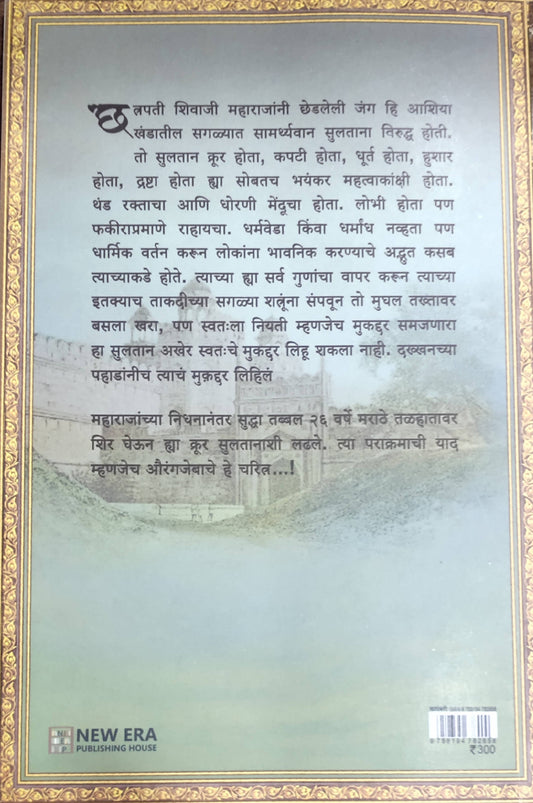 छत्रपती शिवाजी महाराजांनी छेडलेली जंग हि आशिया
खंडातील सगळ्यात सामर्थ्यवान सुलताना विरुद्ध होती.
तो सुलतान क्रूर होता, कपटी होता, धूर्त होता, हुशार
होता, द्रष्टा होता ह्या सोबतच भयंकर महत्वाकांक्षी होता.
थंड रक्ताचा आणि धोरणी मेंदूचा होता. लोभी होता पण
फकीराप्रमाणे राहायचा. धर्मवेडा किंवा धर्मांध नव्हता पण
धार्मिक वर्तन करून लोकांना भावनिक करण्याचे अद्भुत कसब
त्याच्याकडे होते. त्याच्या ह्या सर्व गुणांचा वापर करून त्याच्या
इतक्याच ताकदीच्या सगळ्या शत्रूंना संपवून तो मुघल तख्तावर
बसला खरा, पण स्वतःला नियती म्हणजेच मुकद्दर समजणारा
हा सुलतान अखेर स्वतःचे मुकद्दर लिहू शकला नाही. दख्खनच्या
पहाडांनीच त्याचं मुक़द्दर लिहिलं
महाराजांच्या निधनानंतर सुद्धा तब्बल २६ वर्षे मराठे तळहातावर
शिर घेऊन ह्या क्रूर सुलतानाशी लढले. त्या पराक्रमाची याद
म्हणजेच औरंगजेबाचे हे चरित्र...!
NEW ERA
PUBLISHING HOUSE
9 788194 782858
₹300